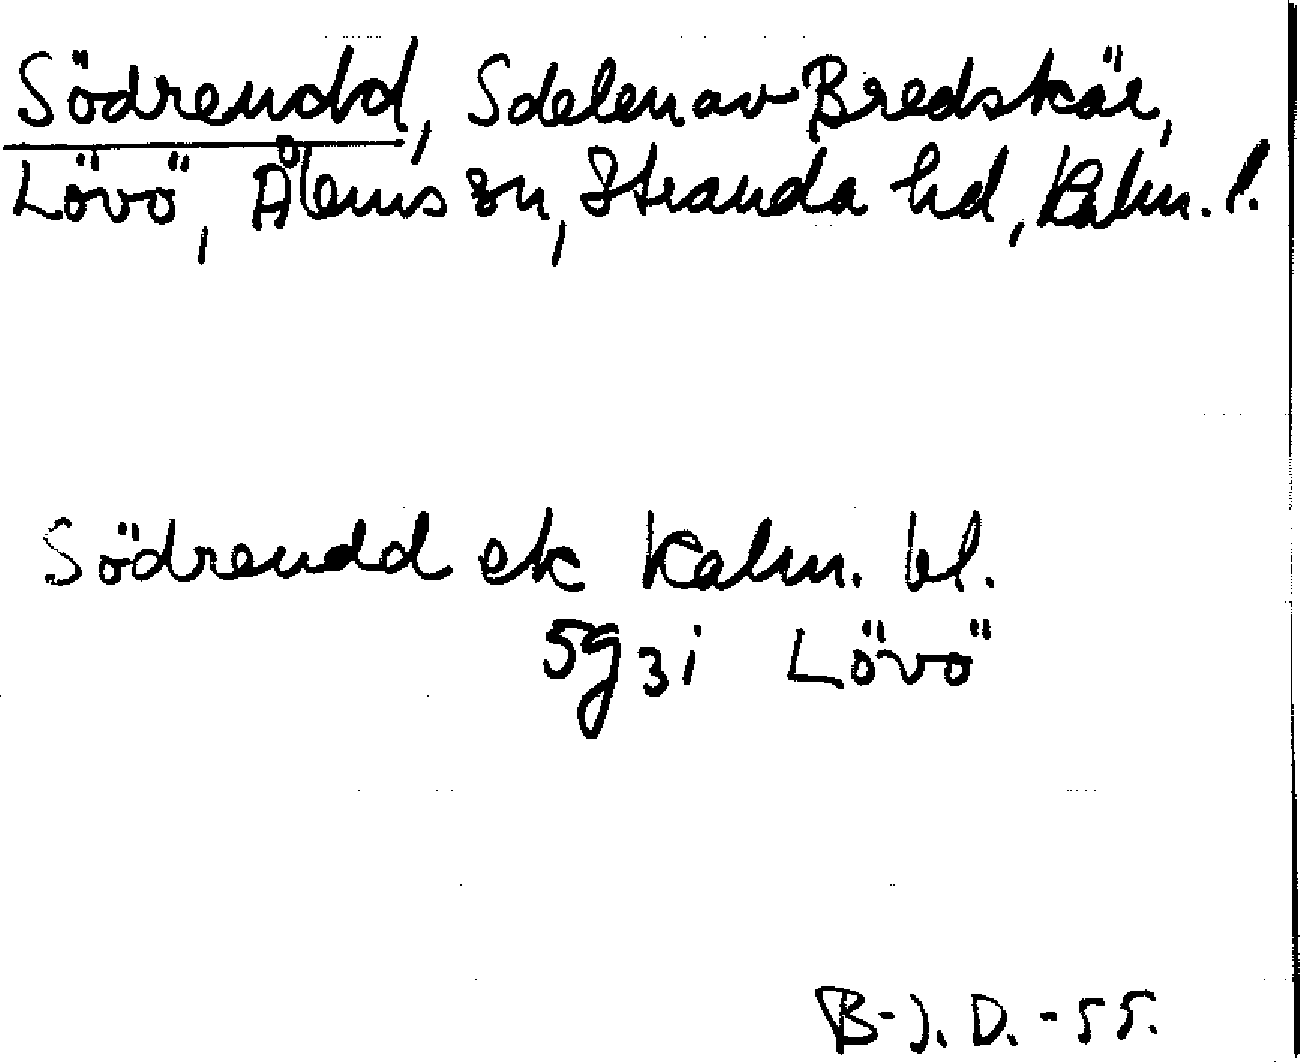 Södreudd, Sdelen av Bredskär,
Lövö, Ålems sn, Stranda hd, Kalm. l.
Södreudd ek Kalm. bl.
5g3i Lövö
B-J. D. -55.